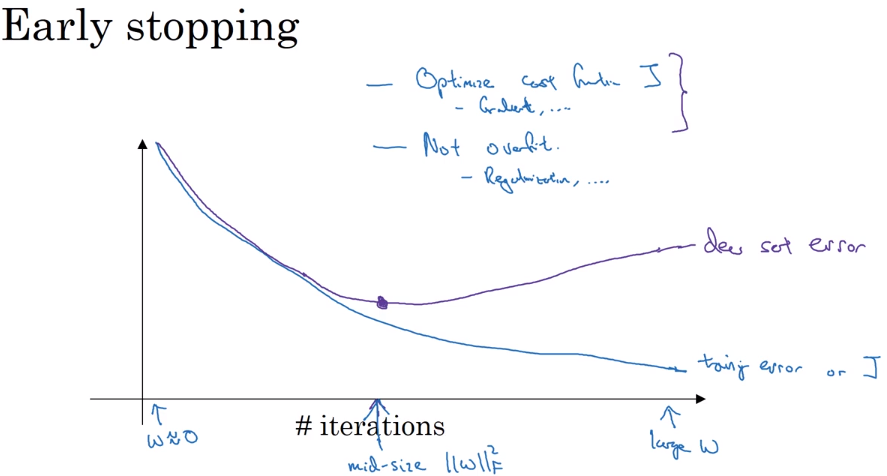 Early stopping
— Optimize cost function J
- Gradient, ....
— Not overfit.
- Regularization, ....
dev set error
training error or J
w≈0
# iterations
large w
mid-size ||w||²_F